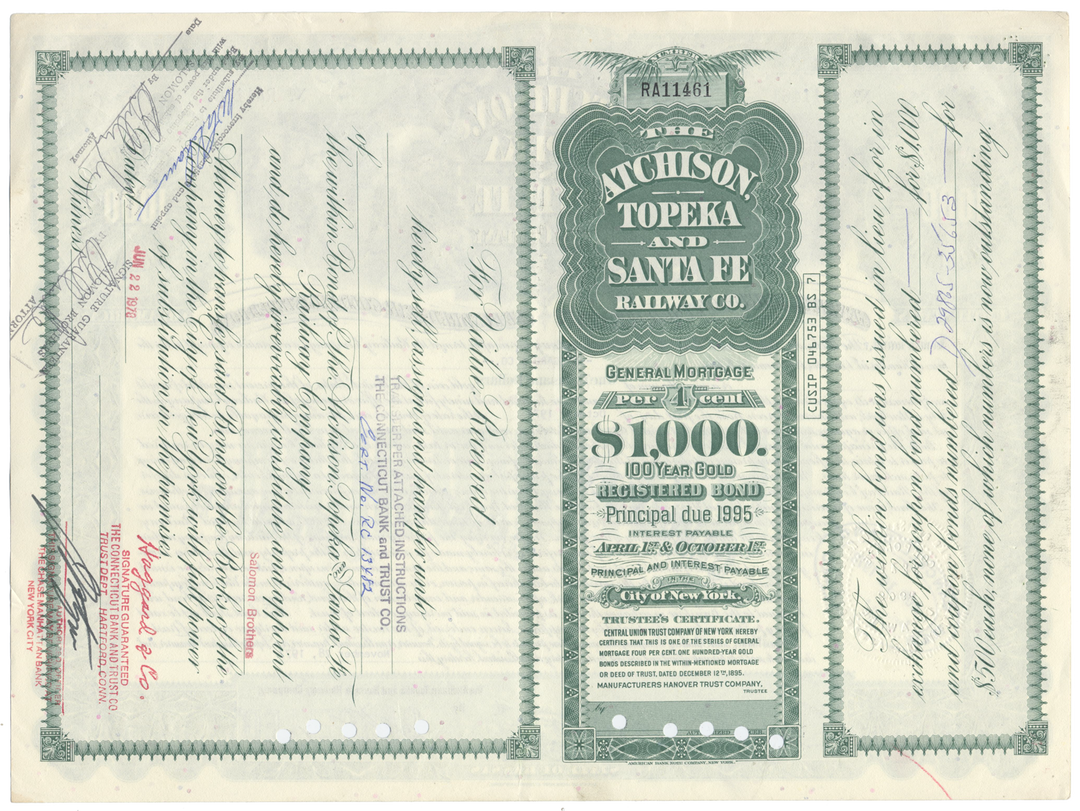 RA11461
THE
ATCHISON,
TOPEKA
AND
SANTA FE
RAILWAY CO.
GENERAL MORTGAGE
Per 4 cent
$1,000.
100 YEAR GOLD
REGISTERED BOND
Principal due 1995
INTEREST PAYABLE
APRIL 1ST & OCTOBER 1ST
PRINCIPAL AND INTEREST PAYABLE
IN THE
City of New York.
TRUSTEE'S CERTIFICATE.
CENTRAL UNION TRUST COMPANY OF NEW YORK HEREBY
CERTIFIES THAT THIS IS ONE OF THE SERIES OF GENERAL
MORTGAGE FOUR PER CENT. ONE HUNDRED-YEAR GOLD
BONDS DESCRIBED IN THE WITHIN-MENTIONED MORTGAGE
OR DEED OF TRUST, DATED DECEMBER 12TH, 1895.
MANUFACTURERS HANOVER TRUST COMPANY,
TRUSTEE
by
AMERICAN BANK NOTE COMPANY, NEW YORK.
CUSIP 046753 BS 7
The within bond was issued in lieu of or in
exchange for coupon bond numbered for $1,000
and coupon bonds numbered for
$500, neither of which numbers is now outstanding.
For Value Received
hereby sell, assign and transfer unto
TRANSFER PER ATTACHED INSTRUCTIONS
THE CONNECTICUT BANK and TRUST CO.
Cert. No. RC 13482
of
the within Bond of The Atchison, Topeka and Santa Fe
Railway Company,
and do hereby irrevocably constitute and appoint
Salomon Brothers
Attorney to transfer said Bond on the Books of the said
Company in the City of New York with full power
of substitution in the premises.
Dated
JUN 22 1970
Haggard & Co.
SIGNATURE GUARANTEED
THE CONNECTICUT BANK AND TRUST CO.
TRUST DEPT. HARTFORD, CONN.
Witness
Hereby irrevocably
and appoint
Date
By
SIGNATURE GUARANTEED
THE CHASE MANHATTAN BANK
NEW YORK CITY